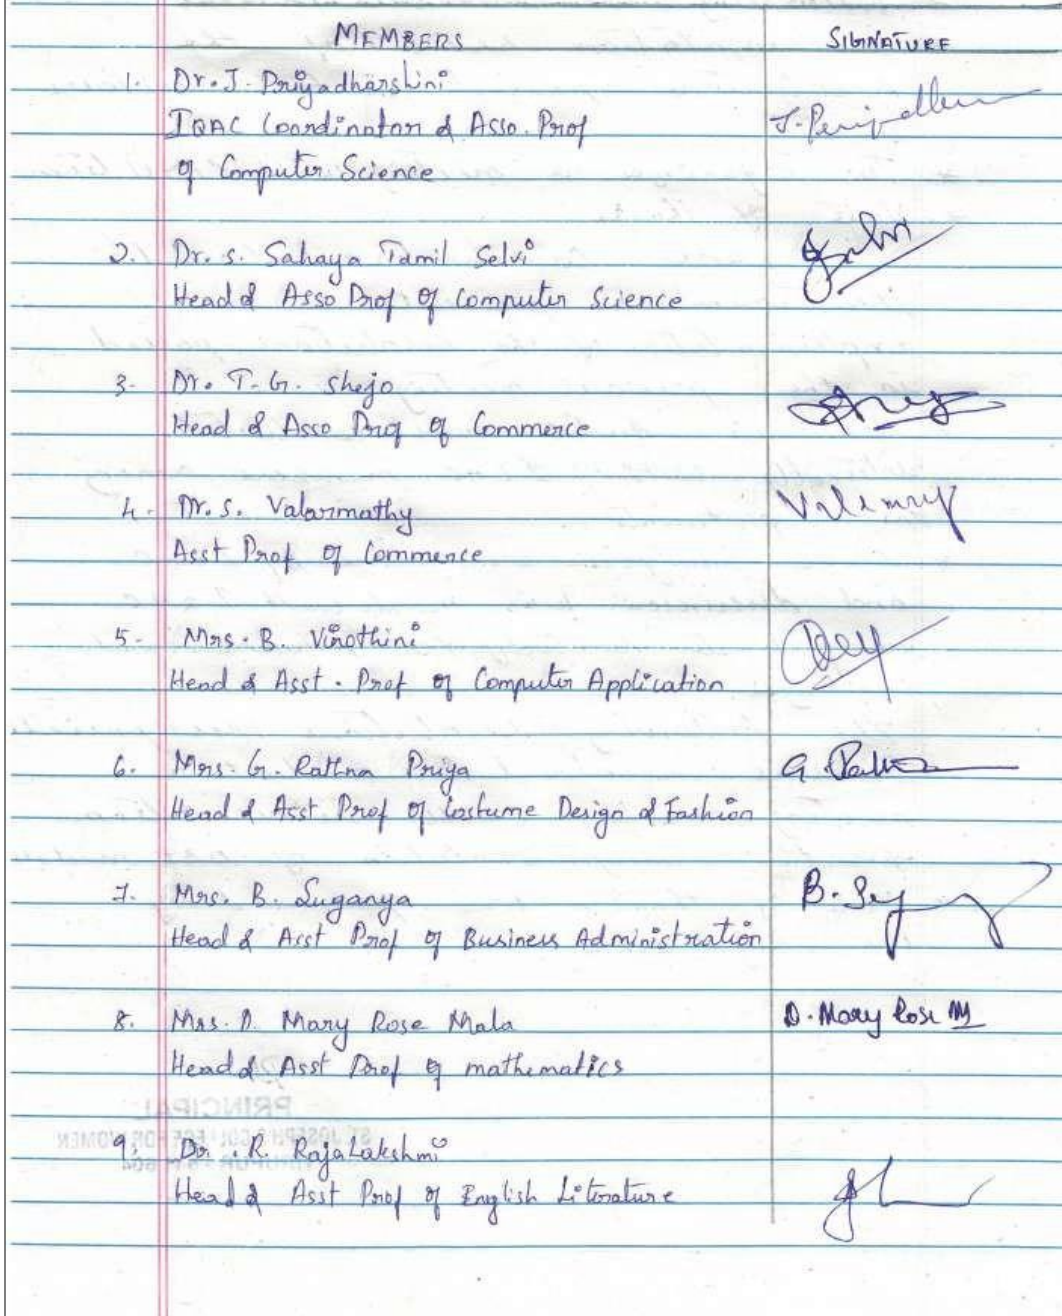 MEMBERS SIGNATURE
1. Dr. J. Priyadharshini
IQAC Coordinator & Asso. Prof
of Computer Science
2. Dr. S. Sahaya Tamil Selvi
Head & Asso Prof of Computer Science
3. Dr. T. G. Shejo
Head & Asso Prof of Commerce
4. Dr. S. Valarmathy
Asst Prof of Commerce
5. Mrs. B. Virothini
Head & Asst. Prof of Computer Application
6. Mrs. G. Rathna Priya
Head & Asst Prof of Costume Design & Fashion
7. Mrs. B. Suganya
Head & Asst Prof of Business Administration
8. Mrs. D. Mary Rose Mala D. Mary Rose M
Head & Asst Prof of mathematics
PRINCIPAL
ST. JOSEPH'S COLLEGE FOR WOMEN
9. Dr. R. RajaLakshmi
Head & Asst Prof of English Literature